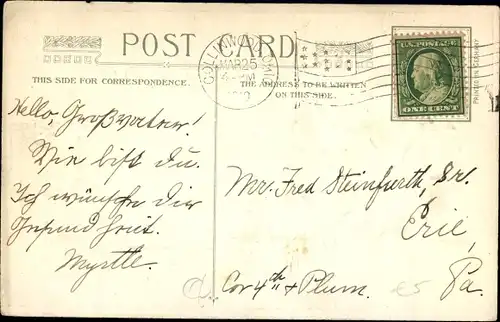 POST CARD
THIS SIDE FOR CORRESPONDENCE.
THE ADDRESS TO BE WRITTEN
ON THIS SIDE.
MAR 25
U.S. POSTAGE
ONE CENT
Hello, Großvater!
Wie bist du.
Ich wünsche dir
Gesundheit.
Myrtle.
Mr. Fred Steinfurth, Sr.
Erie,
Pa.
Cor 4th & Plum.